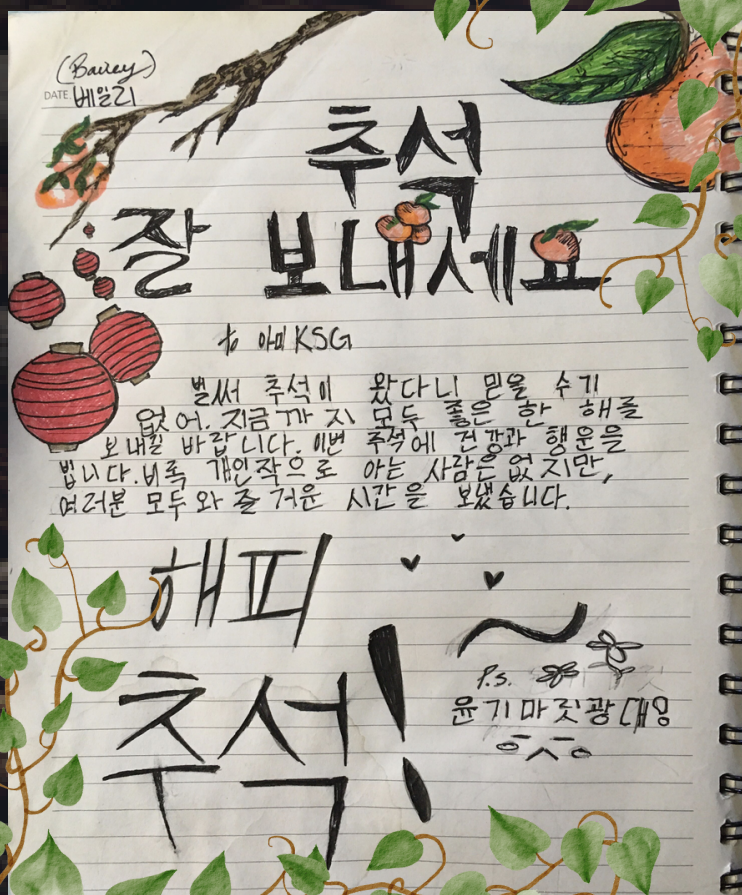 (Bailey)
DATE: 베일리
추석
잘 보내세요
to 아미 KSG
벌써 추석이 왔다니 믿을 수기
없어. 지금까지 모두 좋은 한 해를
보내길 바랍니다. 이번 추석에 건강과 행운을
빕니다. 비록 개인작으로 아는 사람은 없지만,
여러분 모두와 즐거운 시간을 보냈습니다.
해피
추석!
P.s.
윤기마짓쾅대잉